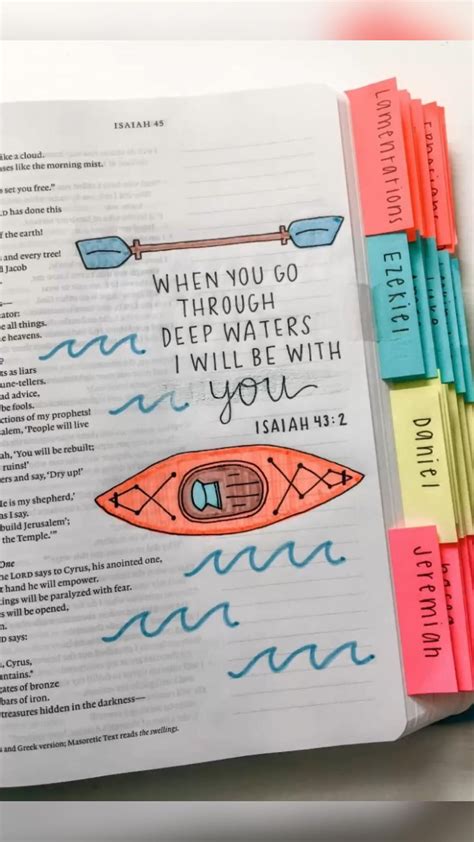 ISAIAH 45
like a cloud.
ses like the morning mist.
s set you free."
LD has done this
of the earth!
and every tree!
d Jacob
s—
ator:
e all things.
e heavens.
?
ts as liars
une-tellers.
ad advice,
be fools.
ctions of my prophets!
salem, 'People will live
ah, 'You will be rebuilt;
ruins!'
ers and say, 'Dry up!'
He is my shepherd,'
as I say.
build Jerusalem';
the Temple.'"
One
he LORD says to Cyrus, his anointed one,
hand he will empower.
kings will be paralyzed with fear.
s will be opened,
n.
D says:
, Cyrus,
antains.*
gates of bronze
bars of iron.
treasures hidden in the darkness—
s and Greek version; Masoretic Text reads the swellings.
WHEN YOU GO
THROUGH
DEEP WATERS
I WILL BE WITH
you
ISAIAH 43:2
Lamentations
Ezekiel
Daniel
Jeremiah